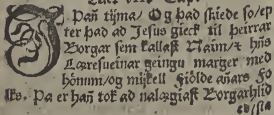 J Pañ tijma / Og þad skiede so / ep
ter þad ad Jesus gieck til þeirrar
Borgar sem kallast Naim / t hñs
Læresueinar geingu marger med
hönum / og mykell Fiölde añars Fo
lks. Þa er hañ tok ad nalægiast Borgarhlid